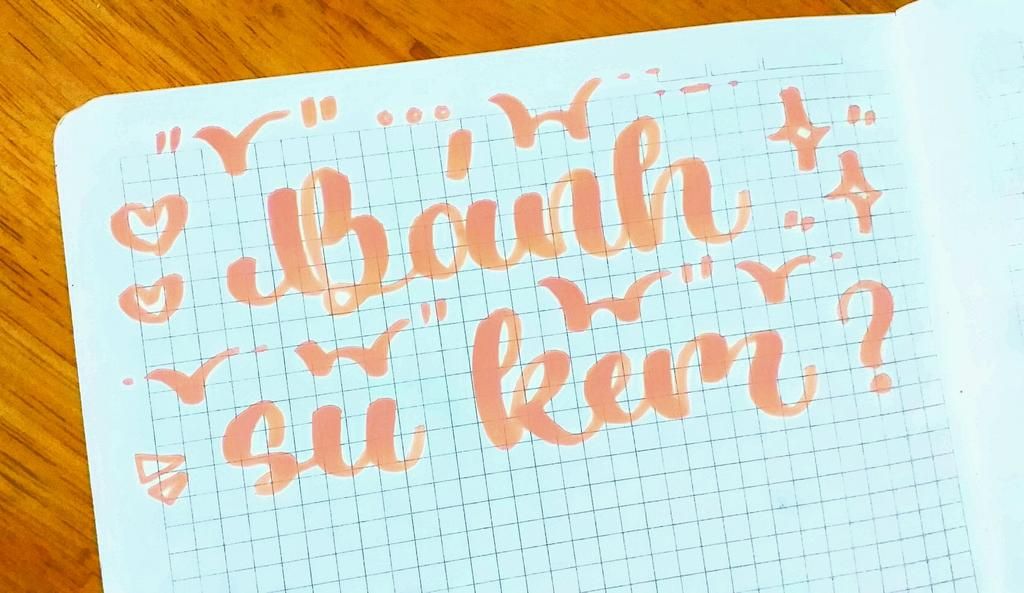 Bánh
su kem?